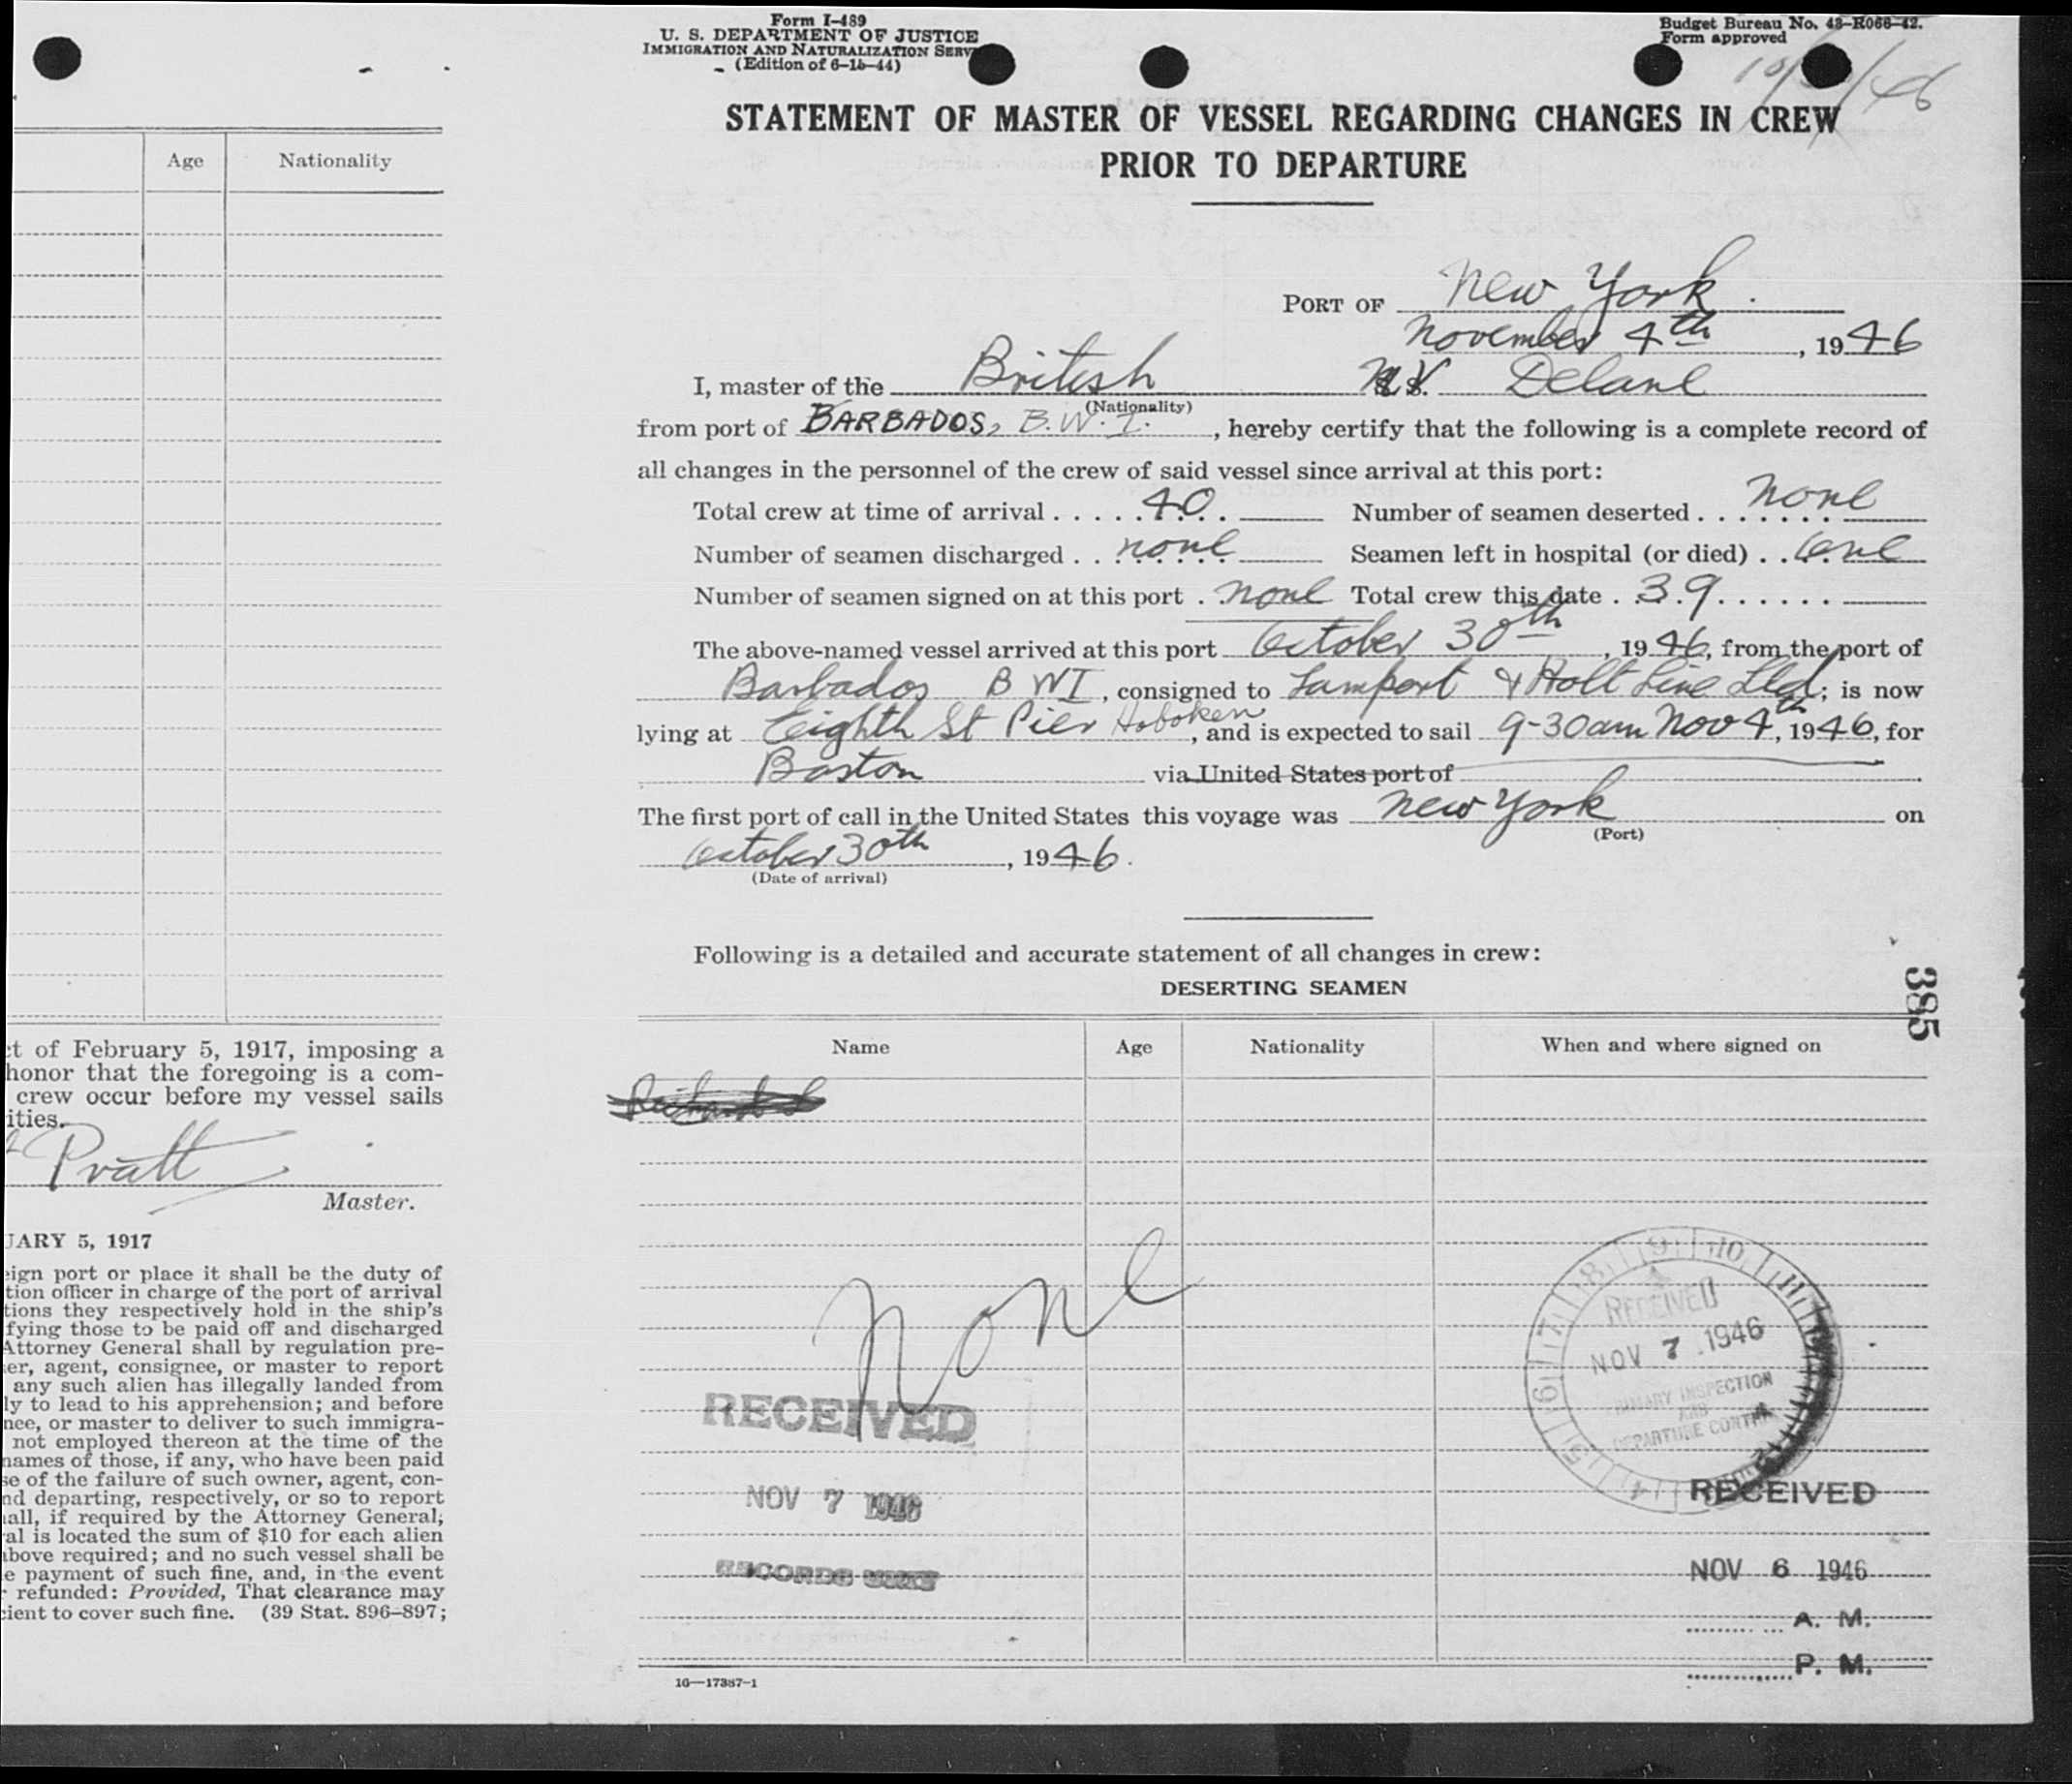 Age Nationality
t of February 5, 1917, imposing a
honor that the foregoing is a com-
crew occur before my vessel sails
ities.
Pratt
Master.
UARY 5, 1917
eign port or place it shall be the duty of
tion officer in charge of the port of arrival
tions they respectively hold in the ship's
fying those to be paid off and discharged
Attorney General shall by regulation pre-
er, agent, consignee, or master to report
any such alien has illegally landed from
ly to lead to his apprehension; and before
nee, or master to deliver to such immigra-
not employed thereon at the time of the
names of those, if any, who have been paid
se of the failure of such owner, agent, con-
nd departing, respectively, or so to report
all, if required by the Attorney General;
al is located the sum of $10 for each alien
above required; and no such vessel shall be
e payment of such fine, and, in the event
refunded: Provided, That clearance may
cient to cover such fine. (39 Stat. 896–897;
Form I-489
U. S. DEPARTMENT OF JUSTICE
IMMIGRATION AND NATURALIZATION SERV
(Edition of 6-15-44)
Budget Bureau No. 43-R066-42.
Form approved
STATEMENT OF MASTER OF VESSEL REGARDING CHANGES IN CREW
PRIOR TO DEPARTURE
PORT OF New York
November 4th, 1946
I, master of the British M.V. Delane
(Nationality)
from port of BARBADOS, B.W.I., hereby certify that the following is a complete record of
all changes in the personnel of the crew of said vessel since arrival at this port:
Total crew at time of arrival . . . . . 40 Number of seamen deserted . . . none
Number of seamen discharged . . none Seamen left in hospital (or died) . . One
Number of seamen signed on at this port . none Total crew this date . 39
The above-named vessel arrived at this port October 30th, 1946, from the port of
Barbados B W I, consigned to Lamport & Holt Line Ltd; is now
lying at Eighth St Pier Hoboken, and is expected to sail 9-30am Nov 4th, 1946, for
Boston via United States port of
The first port of call in the United States this voyage was New York on
(Port)
October 30th, 1946.
(Date of arrival)
Following is a detailed and accurate statement of all changes in crew:
DESERTING SEAMEN
385
Name Age Nationality When and where signed on
None
RECEIVED
NOV 7 1946
RECORDS UNIT
RECEIVED
NOV 7 1946
INSPECTION
AND
DEPARTURE CONTROL
RECEIVED
NOV 6 1946
A. M.
P. M.
16—17387-1